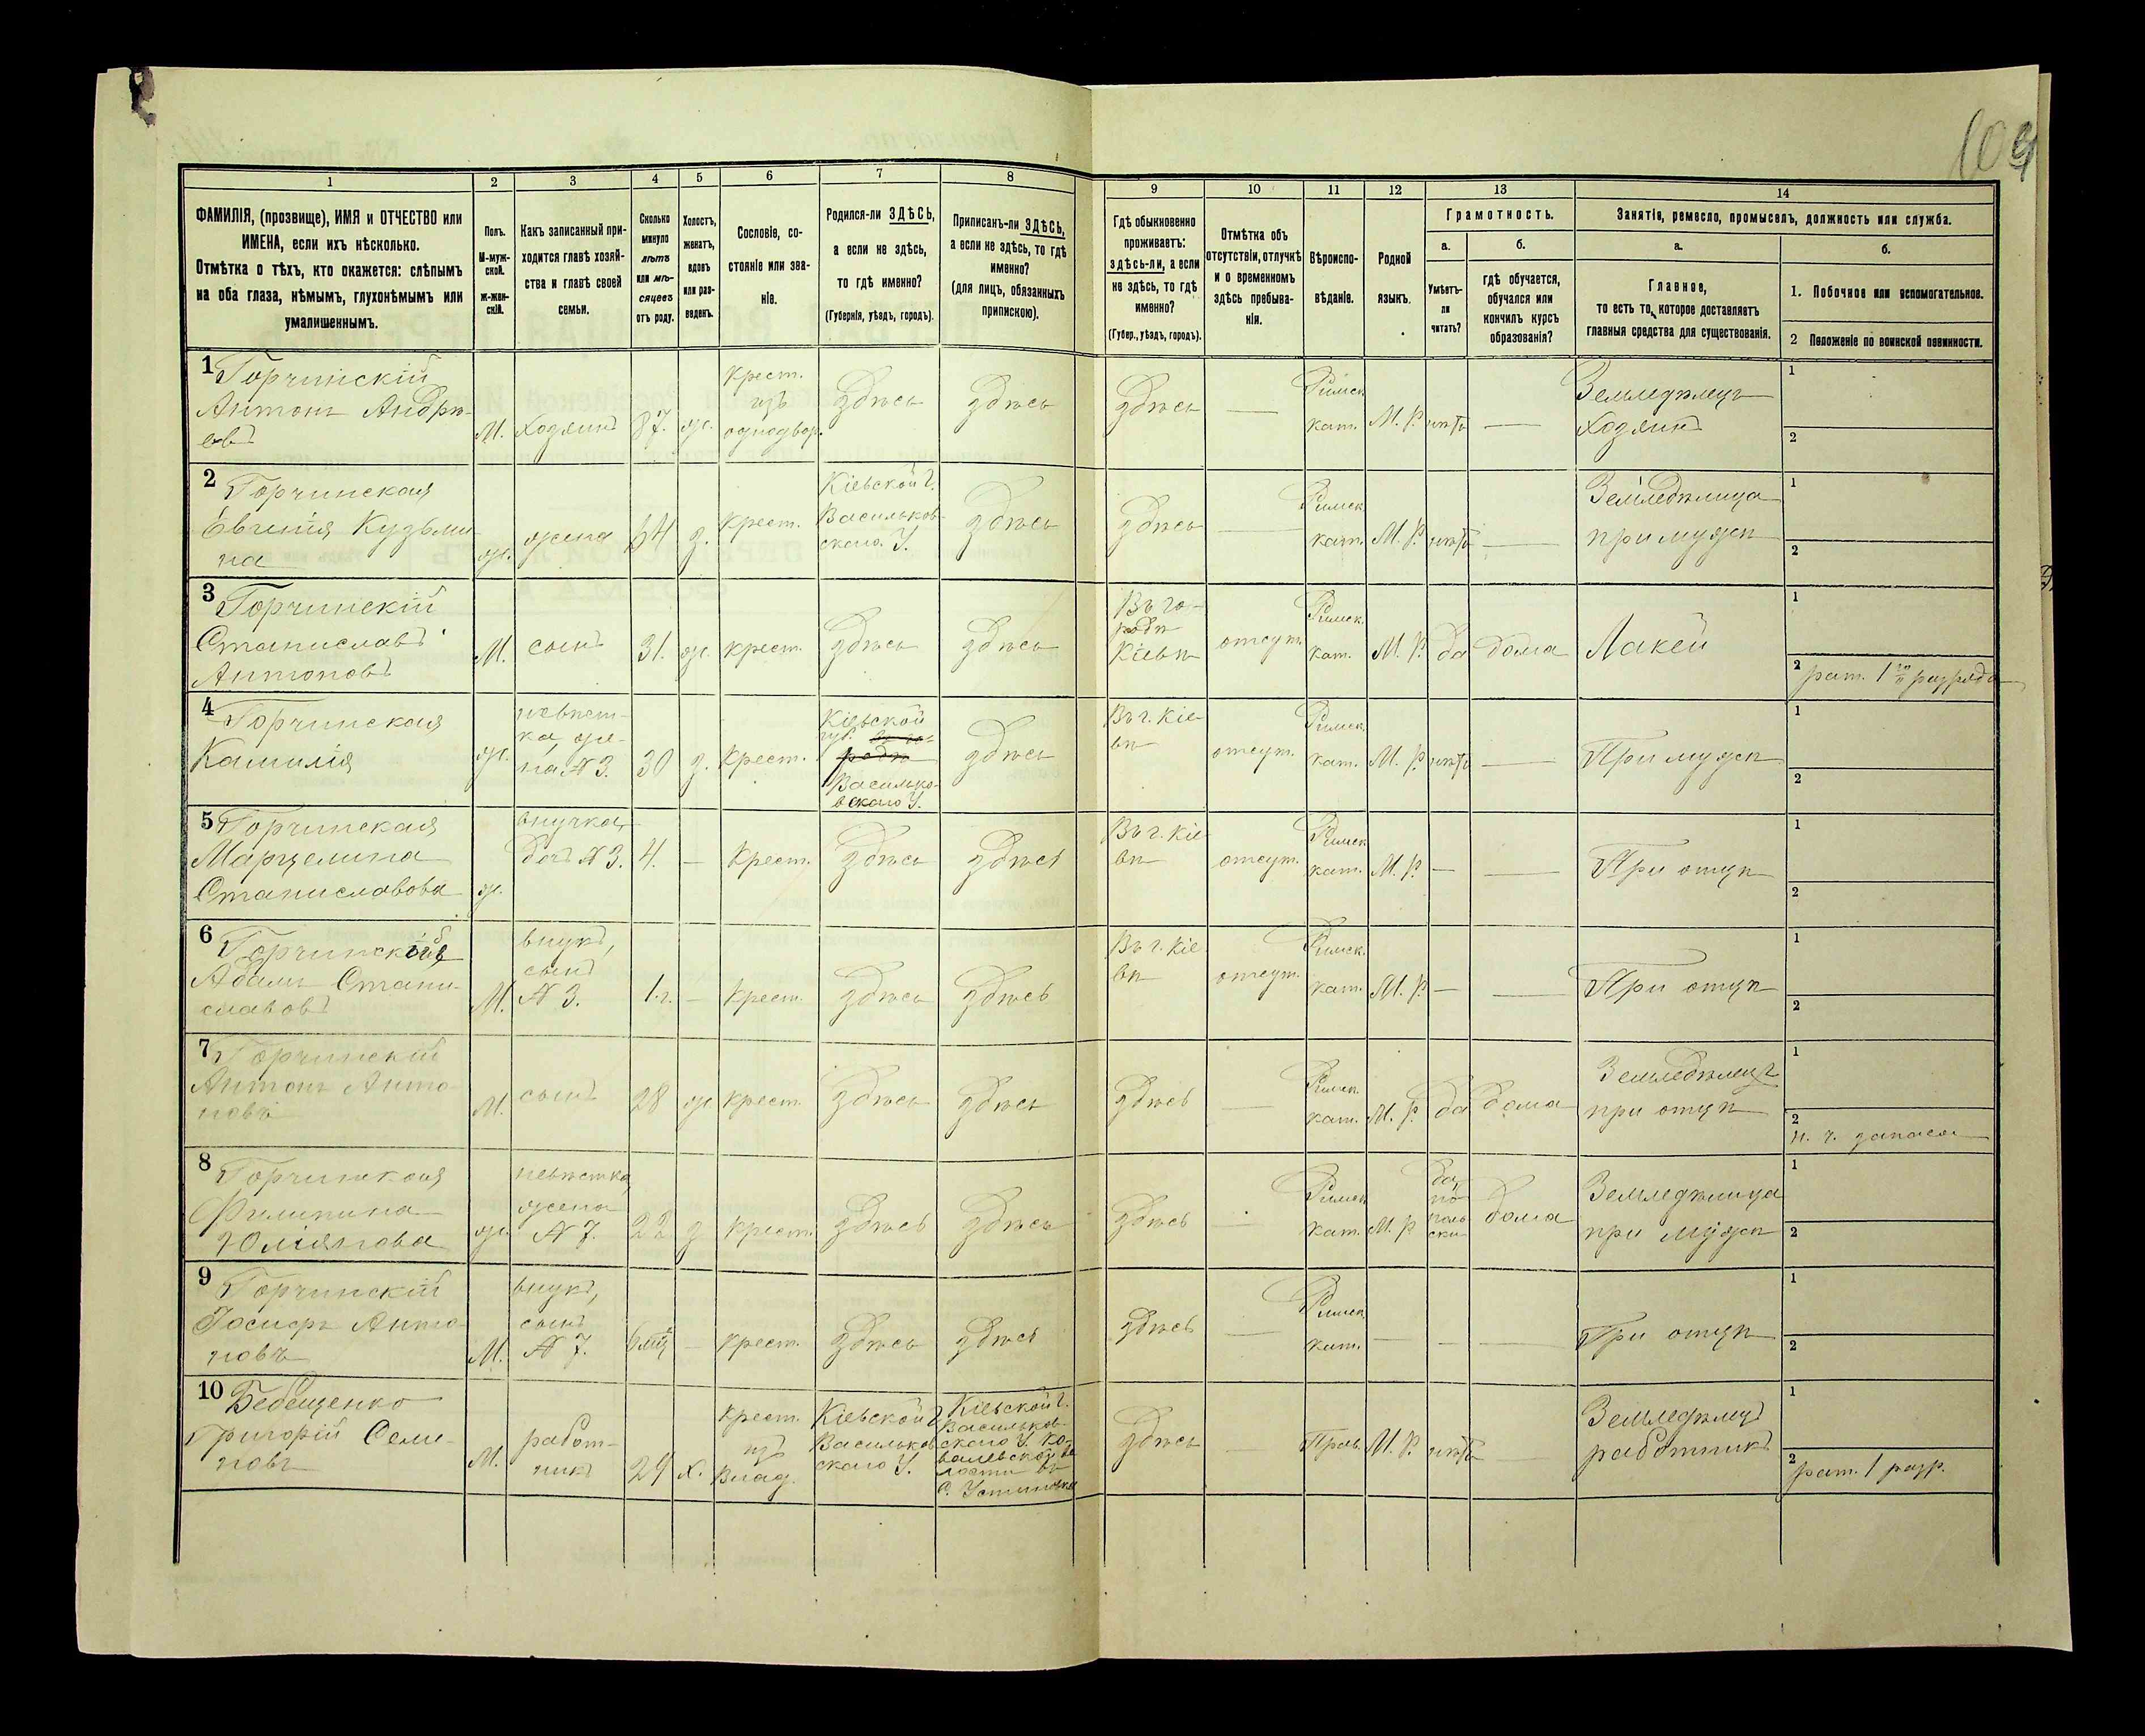 109
1
2
3
4
5
6
7
8
9
10
11
12
13
14
ФАМИЛІЯ, (прозвище), ИМЯ и ОТЧЕСТВО или
ИМЕНА, если ихъ нѣсколько.
Отмѣтка о тѣхъ, кто окажется: слѣпымъ
на оба глаза, нѣмымъ, глухонѣмымъ или
умалишеннымъ.
Полъ.
М-муж-
ской.
ж-жен-
скій.
Какъ записанный при-
ходится главѣ хозяй-
ства и главѣ своей
семьи.
Сколько
минуло
лѣтъ
или мѣ-
сяцевъ
отъ роду.
Холостъ,
женатъ,
вдовъ
или раз-
веденъ.
Сословіе, со-
стояніе или зва-
ніе.
Родился-ли ЗДѢСЬ,
а если не здѣсь,
то гдѣ именно?
(Губернія, уѣздъ, городъ).
Приписанъ-ли ЗДѢСЬ,
а если не здѣсь, то гдѣ
именно?
(для лицъ, обязанныхъ
припискою).
Гдѣ обыкновенно
проживаетъ:
здѣсь-ли, а если
не здѣсь, то гдѣ
именно?
(Губер., уѣздъ, городъ).
Отмѣтка объ
отсутствіи, отлучкѣ
и о временномъ
здѣсь пребыва-
ніи.
Вѣроиспо-
вѣданіе.
Родной
языкъ.
Грамотность.
а.
Умѣетъ-
ли
читать?
б.
гдѣ обучается,
обучался или
кончилъ курсъ
образованія?
Занятіе, ремесло, промыселъ, должность или служба.
а.
Главное,
то есть то, которое доставляетъ
главныя средства для существованія.
б.
1. Побочное или вспомогательное.
2 Положеніе по воинской повинности.
1 Горчинскій
Антонъ Андрѣ-
евъ
М.
Хозяинъ
ж.
Крест.
изъ
однодвор.
здѣсь
здѣсь
здѣсь
—
Римск.
кат.
М. Р.
нѣтъ
—
Земледѣлецъ
Хозяинъ
1
2
2 Горчинская
Евгенія Кузьми-
на
ж.
жена
з.
Крест.
Кіевской г.
Васильков-
скаго У.
здѣсь
здѣсь
—
Римск.
кат.
М. Р.
нѣтъ
—
Земледѣлица
при мужѣ
1
2
3 Горчинскій
Станиславъ
Антоновъ
М.
сынъ
31.
ж.
крест.
здѣсь
здѣсь
Въ го-
родѣ
Кіевѣ
отсут.
Римск.
кат.
М. Р.
да
дома
Лакей
1
2 рат. 1го разряда
4 Горчинская
Камилія
ж.
невѣст-
ка, же-
на № 3.
30
з.
Крест.
Кіевской
губ.
Василько-
вскаго У.
здѣсь
Въ г. Кіе-
вѣ
отсут.
Римск.
кат.
М. Р.
нѣтъ
—
При мужѣ
1
2
5 Горчинская
Марцелина
Станиславова
ж.
внучка,
дочь № 3.
4.
—
Крест.
здѣсь
здѣсь
Въ г. Кіе-
вѣ
отсут.
Римск.
кат.
М. Р.
—
—
При отцѣ
1
2
6 Горчинскій
Адамъ Стани-
славовъ
М.
внукъ,
сынъ
№ 3.
1 г.
—
Крест.
здѣсь
здѣсь
Въ г. Кіе-
вѣ
отсут.
Римск.
кат.
М. Р.
—
—
При отцѣ
1
2
7 Горчинскій
Антонъ Анто-
новъ
М.
сынъ
28
ж
крест.
здѣсь
здѣсь
здѣсь
—
Римск.
кат.
М. Р.
да
дома
Земледѣлецъ
при отцѣ
1
2
н. ч. запаса
8 Горчинская
Филипина
Юліянова
ж.
невѣстка,
жена
№ 7.
22
з
крест.
здѣсь
здѣсь
здѣсь
—
Римск.
кат.
М. Р.
да,
по
поль
ски
дома
Земледѣлица
при мужѣ
1
2
9 Горчинскій
Іосифъ Анто-
новъ
М.
внукъ,
сынъ
№ 7.
—
крест.
здѣсь
здѣсь
здѣсь
—
Римск.
кат.
—
—
—
При отцѣ
1
2
10 Бебещенко
Григорій Семе-
новъ
М.
работ-
никъ
29
х.
крест.
изъ
Влад.
Кіевской г.
Васильков-
скаго У.
Кіевской г.
Васильков-
скаго У. Ко-
валевской во
лости въ
с. Устимовка
здѣсь
—
Прав.
М. Р.
нѣтъ
—
Земледѣлецъ
работникъ
1
2 рат. 1 разр.